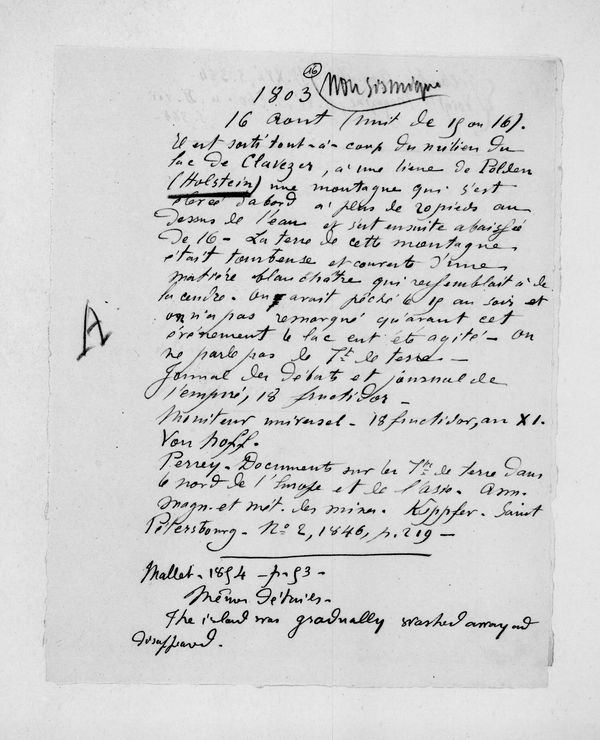 16 Non sismique
1803
16 Aout (nuit de 15 au 16).
Il est sorti tout-à-coup du milieu du
lac de Clavezer, à une lieue de Polden
(Holstein) une montagne qui s'est
élevée d'abord à plus de 20 pieds au
dessus de l'eau et s'est ensuite abaissée
de 16 - La terre de cette montagne
était tourbeuse et couverte d'une
matière blanchâtre qui ressemblait à de
la cendre. On avait pêché le 15 au soir et
on n'a pas remarqué qu'avant cet
événement le lac eut été agité - On
ne parle pas de Tt de terre -
A
Journal des débats et journal de
l'empire, 18 fructidor -
Moniteur universel - 18 fructidor, an XI.
Von Hoff.
Perrey - Documents sur les Tts de terre dans
le nord de l'Europe et de l'Asie. Ann.
magn. et mét. des mines - Kuppfer - Saint
Pétersbourg - No 2, 1846, p. 219 -
Mallet - 1854 - p. 53 -
Mêmes détails -
The island was gradually washed away and
disappeared.